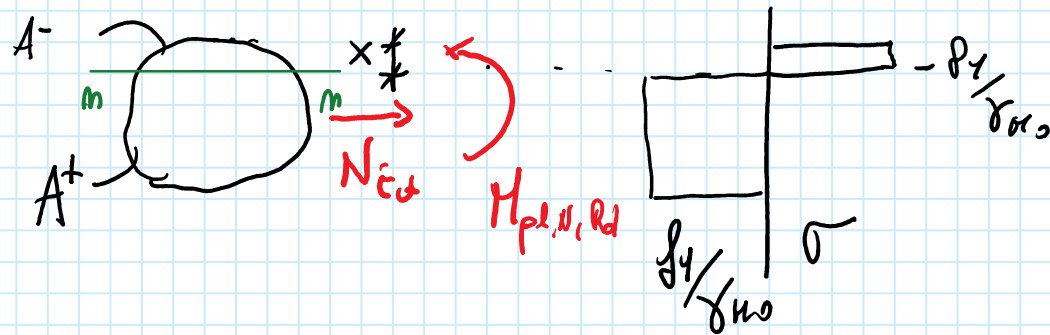 A⁻
x
n n
A⁺
N_Ed
M_pl,N,Rd
- fy/γM0
fy/γM0
σ